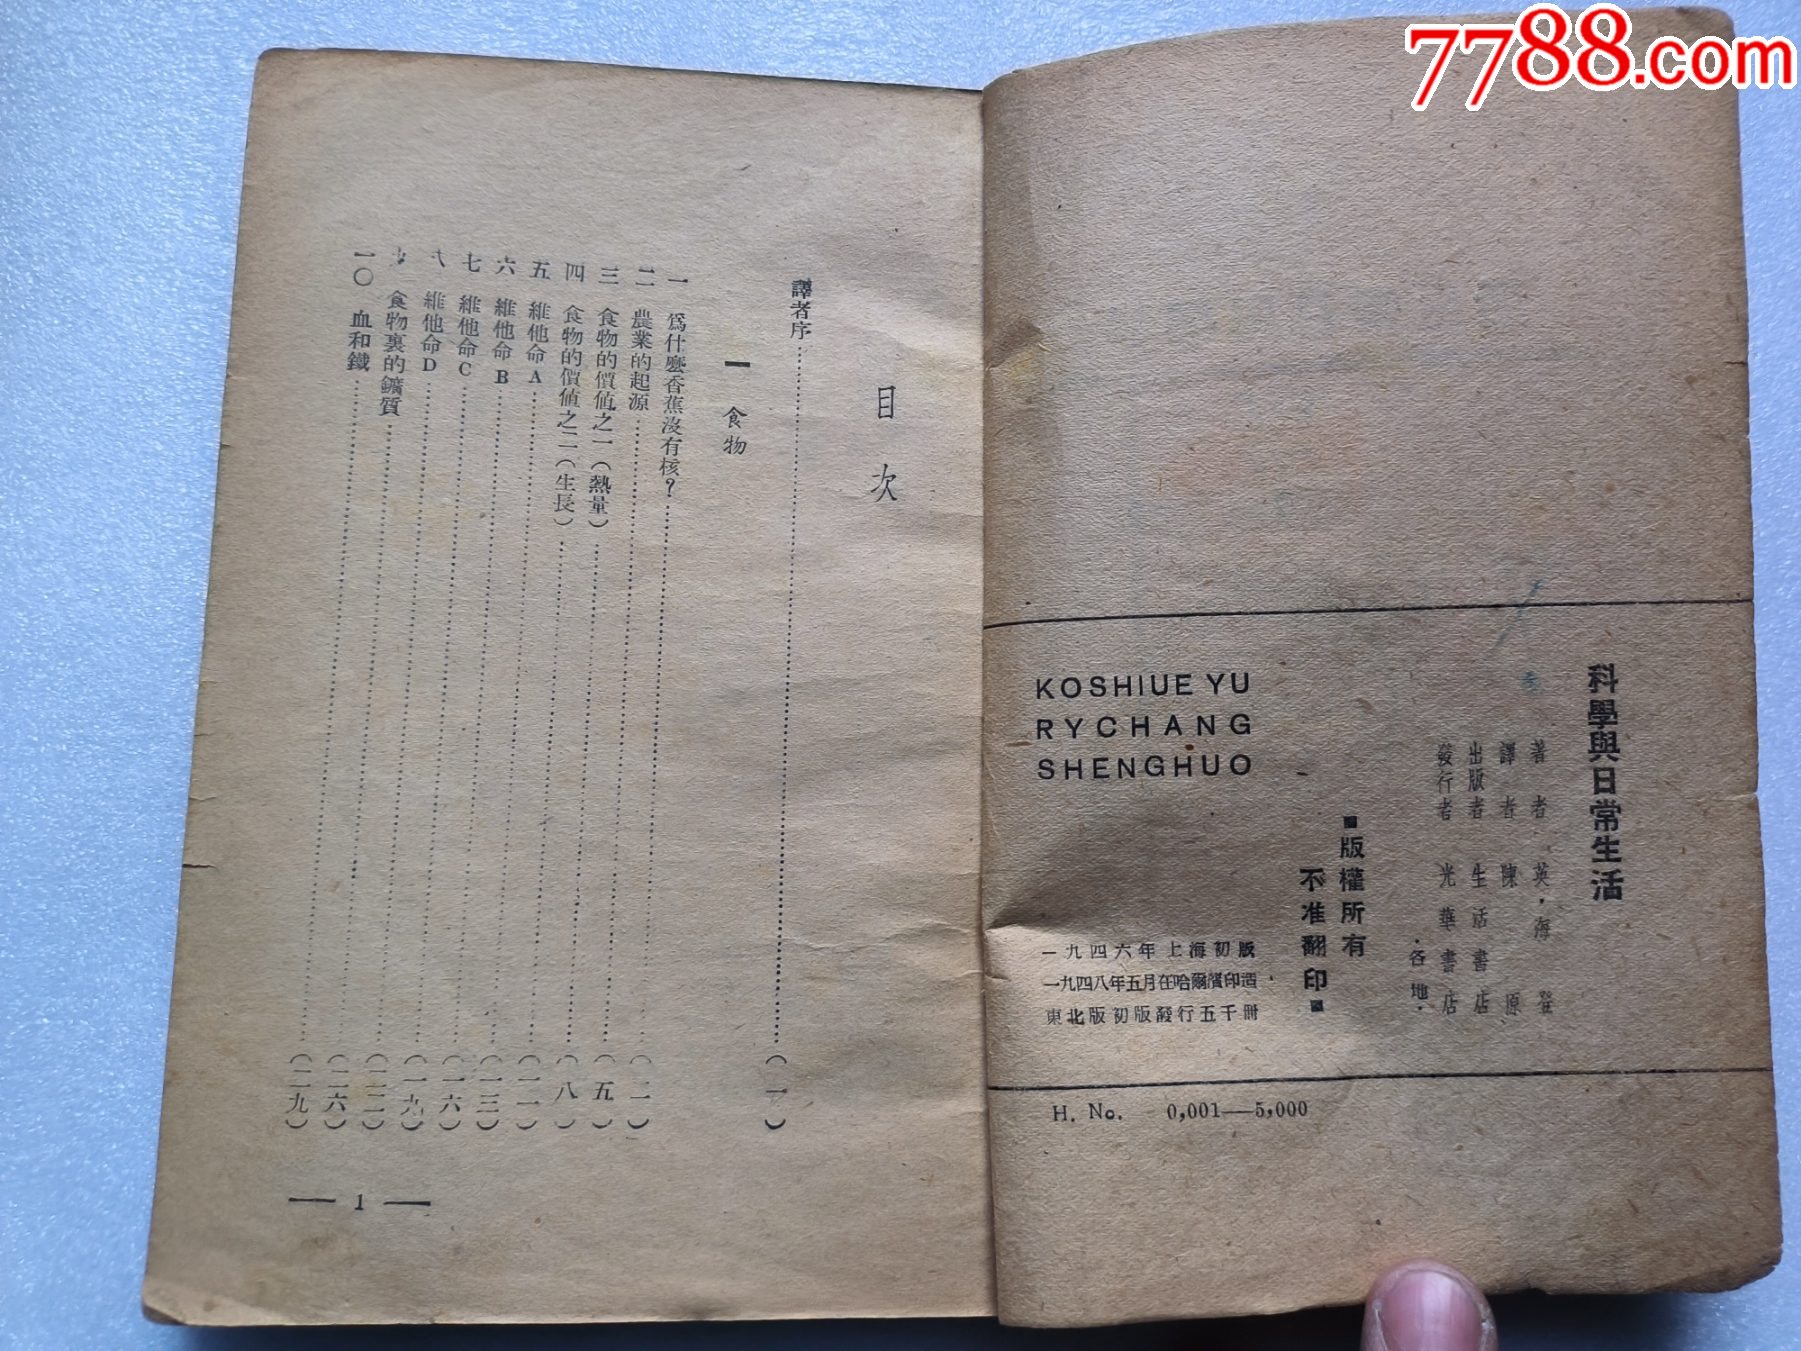 7788.com
科學與日常生活
著者 英·海登
譯者 陳原
出版者 生活書店
發行者 光華書店
·各地·
■版權所有
不准翻印■
一九四六年上海初版
一九四八年五月在哈爾濱印造
東北版初版發行五千冊
KOSHIUE YU
RYCHANG
SHENGHUO
H. No. 0,001—5,000
目次
譯者序……(一)
一 食物
一 爲什麼香蕉沒有核?……(二)
二 農業的起源……(五)
三 食物的價値之一(熱量)……(八)
四 食物的價値之二(生長)……(一一)
五 維他命A……(一三)
六 維他命B……(一六)
七 維他命C……(一九)
八 維他命D……(二二)
九 食物裏的鑛質……(二六)
一〇 血和鐵……(二九)
— 1 —